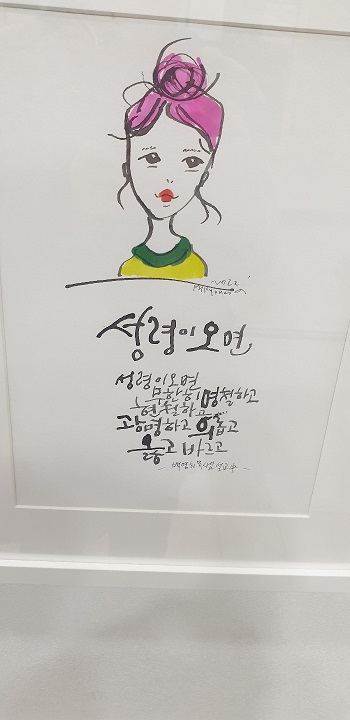 성령이오면
성령이오면
무한히 명철하고
현철하고
광명하고 의롭고
옳고 바르고